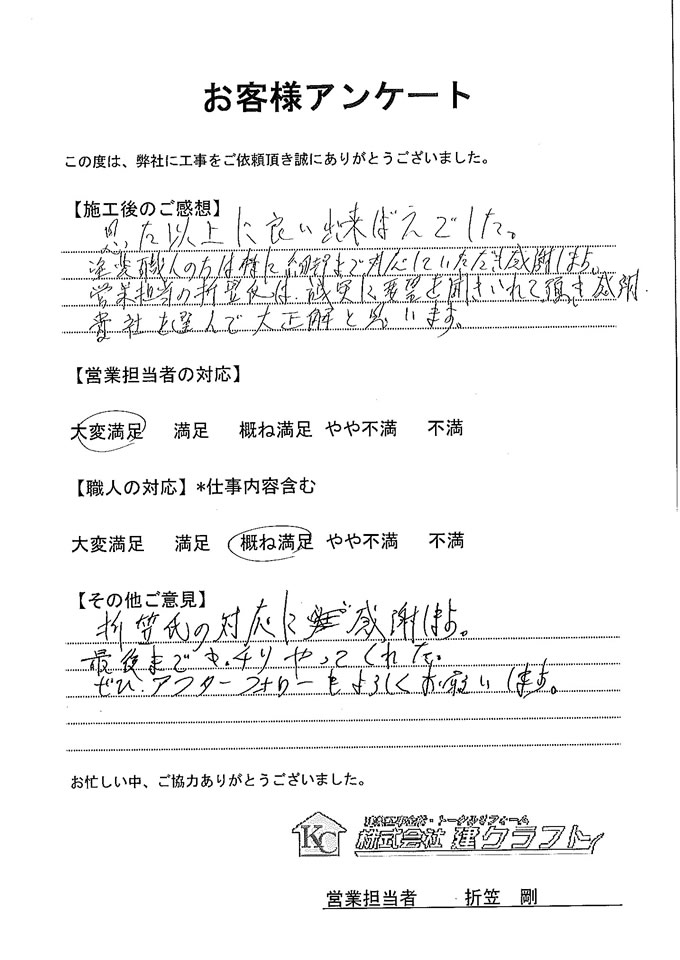 お客様アンケート
この度は、弊社に工事をご依頼頂き誠にありがとうございました。
【施工後のご感想】
思った以上に良い出来ばえでした。
塗装職人の方は様に細部まで対応していただき感謝します。
営業担当の折笠氏は、誠実に要望を聞きいれて頂き感謝.
貴社を選んで大正解と思います。
【営業担当者の対応】
大変満足 満足 概ね満足 やや不満 不満
【職人の対応】*仕事内容含む
大変満足 満足 概ね満足 やや不満 不満
【その他ご意見】
折笠氏の対応に感謝します。
最後まできっちりやってくれた。
ぜひ、アフターフォローもよろしくお願いします。
お忙しい中、ご協力ありがとうございました。
KC
・トータルリフォーム
株式会社 建クラフト
営業担当者 折笠 剛